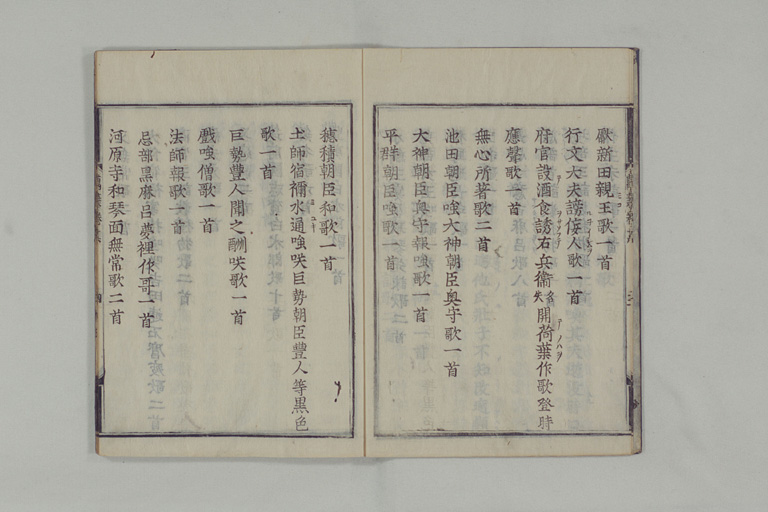 獻新田親王歌一首
行文大夫謗佞人歌一首
府官設酒食誘右兵衞姓名失開荷葉作歌登時
應聲歌一首
無心所著歌二首
池田朝臣嗤大神朝臣奥守歌一首
大神朝臣奥守報嗤歌一首
平群朝臣嗤歌一首
穂積朝臣和歌一首
土師宿禰水通嗤咲巨勢朝臣豐人等黒色
歌一首
巨勢豐人聞之酬咲歌一首
戲嗤僧歌一首
法師報歌一首
忌部黒麻呂夢裡作哥一首
河原寺和琴面無常歌二首